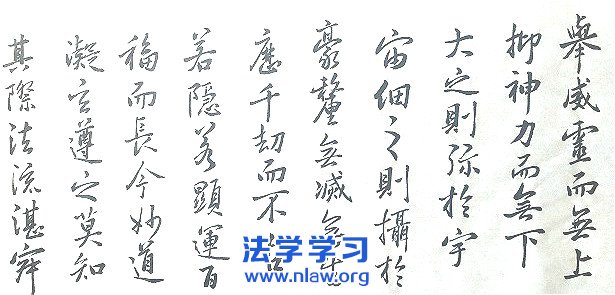 舉威靈而無上
抑神力而無下
大之則弥於宇
宙細之則攝於
豪釐無滅無生
歷千劫而不古
若隱若顯運百
福而長今妙道
凝玄遵之莫知
其際法流湛寂
法学学习
www.nlaw.org